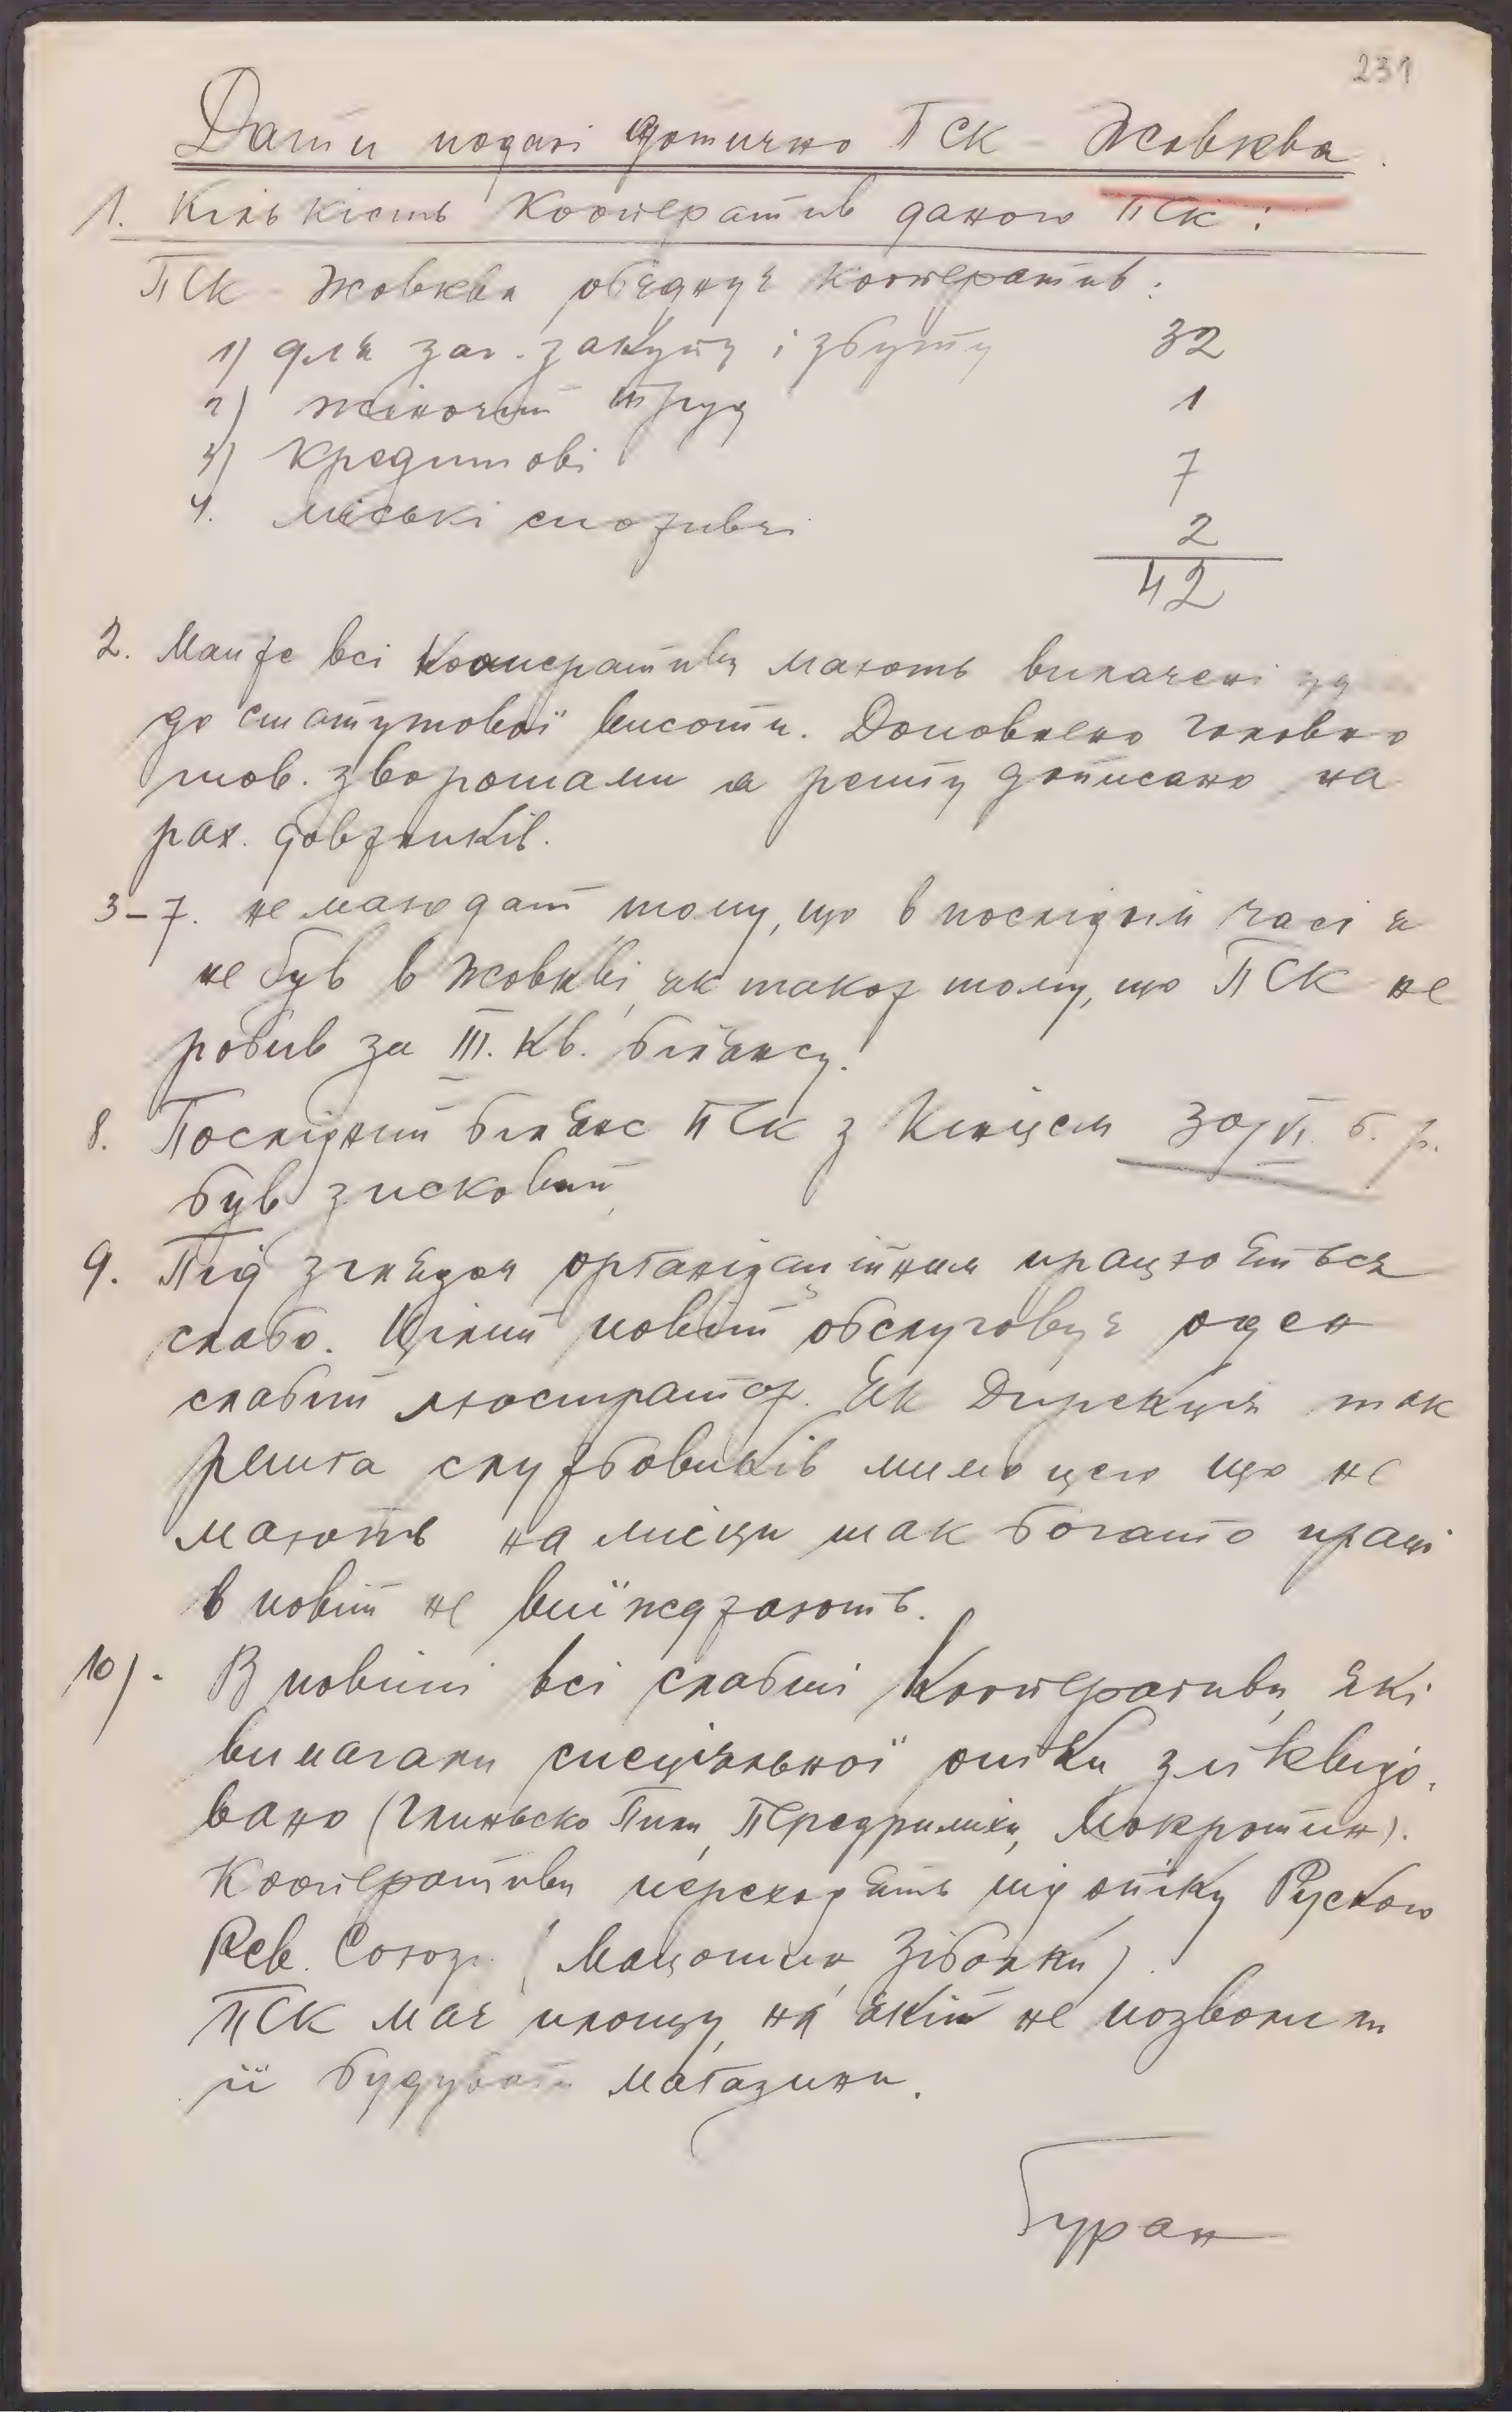 231
Дати подані дотично ПСК - Жовква.
1. Кількість кооператив даного ПСК:
ПСК - Жовква обєднує кооператив:
1) для заг. закупу і збуту 32
2) жіночий труд 1
3) кредитові 7
4. міські споживчі 2
42
2. Майже всі кооперативи мають виплачені уд
до статутової висоти. Доповнено головно
тов. зворотами а решту дописано на
рах. довжників.
3-7. не маю дат тому, що в послідним часі я
не був в Жовкві, як також тому, що ПСК не
робив за III. кв. білянсу.
8. Послідний білянс ПСК з кінцем 30/VI. б. р.
був зисковий,
9. Під зглядом організаційним працюється
слабо. Цілий повіт обслуговує оден
слабий люстратор. Як Дирекція так
решта службовиків мимо цего що не
мають на місци так богато праці
в повіт не виїжджають.
10). В повіті всі слабші кооперативи, які
вимагали спеціяльної опіки зліквідо-
вано (Глинсько Пили, Передримихи, Мокротин).
Кооперативи переходять під опіку Руского
Рев. Союзу (Мацошин, Зіболки).
ПСК має площу, на якій не позволили
їй будувати магазини.
Буран